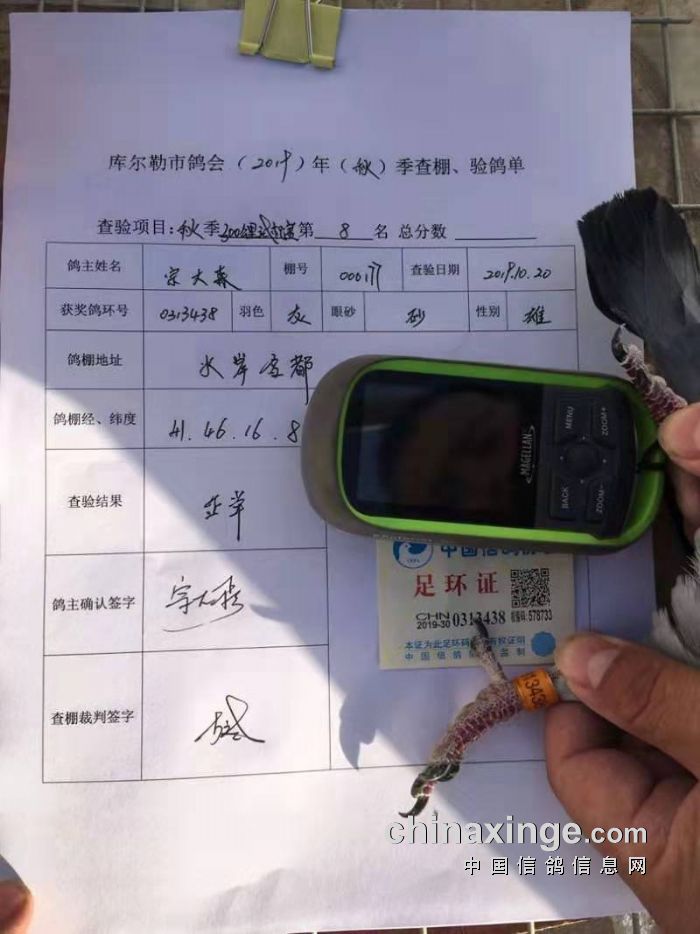 库尔勒市鸽会（2019）年（秋）季查棚、验鸽单
查验项目：秋季300 第 8 名 总分数
鸽主姓名 宗大森 棚号 000177 查验日期 2019.10.20
获奖鸽环号 0313438 羽色 灰 眼砂 砂 性别 雄
鸽棚地址 水岸 都
鸽棚经、纬度 41.46.16.8
查验结果
鸽主确认签字 宗大森
查棚裁判签字
MAGELLAN
MENU
ZOOM+
BACK
ZOOM-
中国信鸽
足环证
CHN
2019-30 0313438 578733
本证为此足环 有权证明
中国信鸽 制
chinaxinge.com
中国信鸽信息网